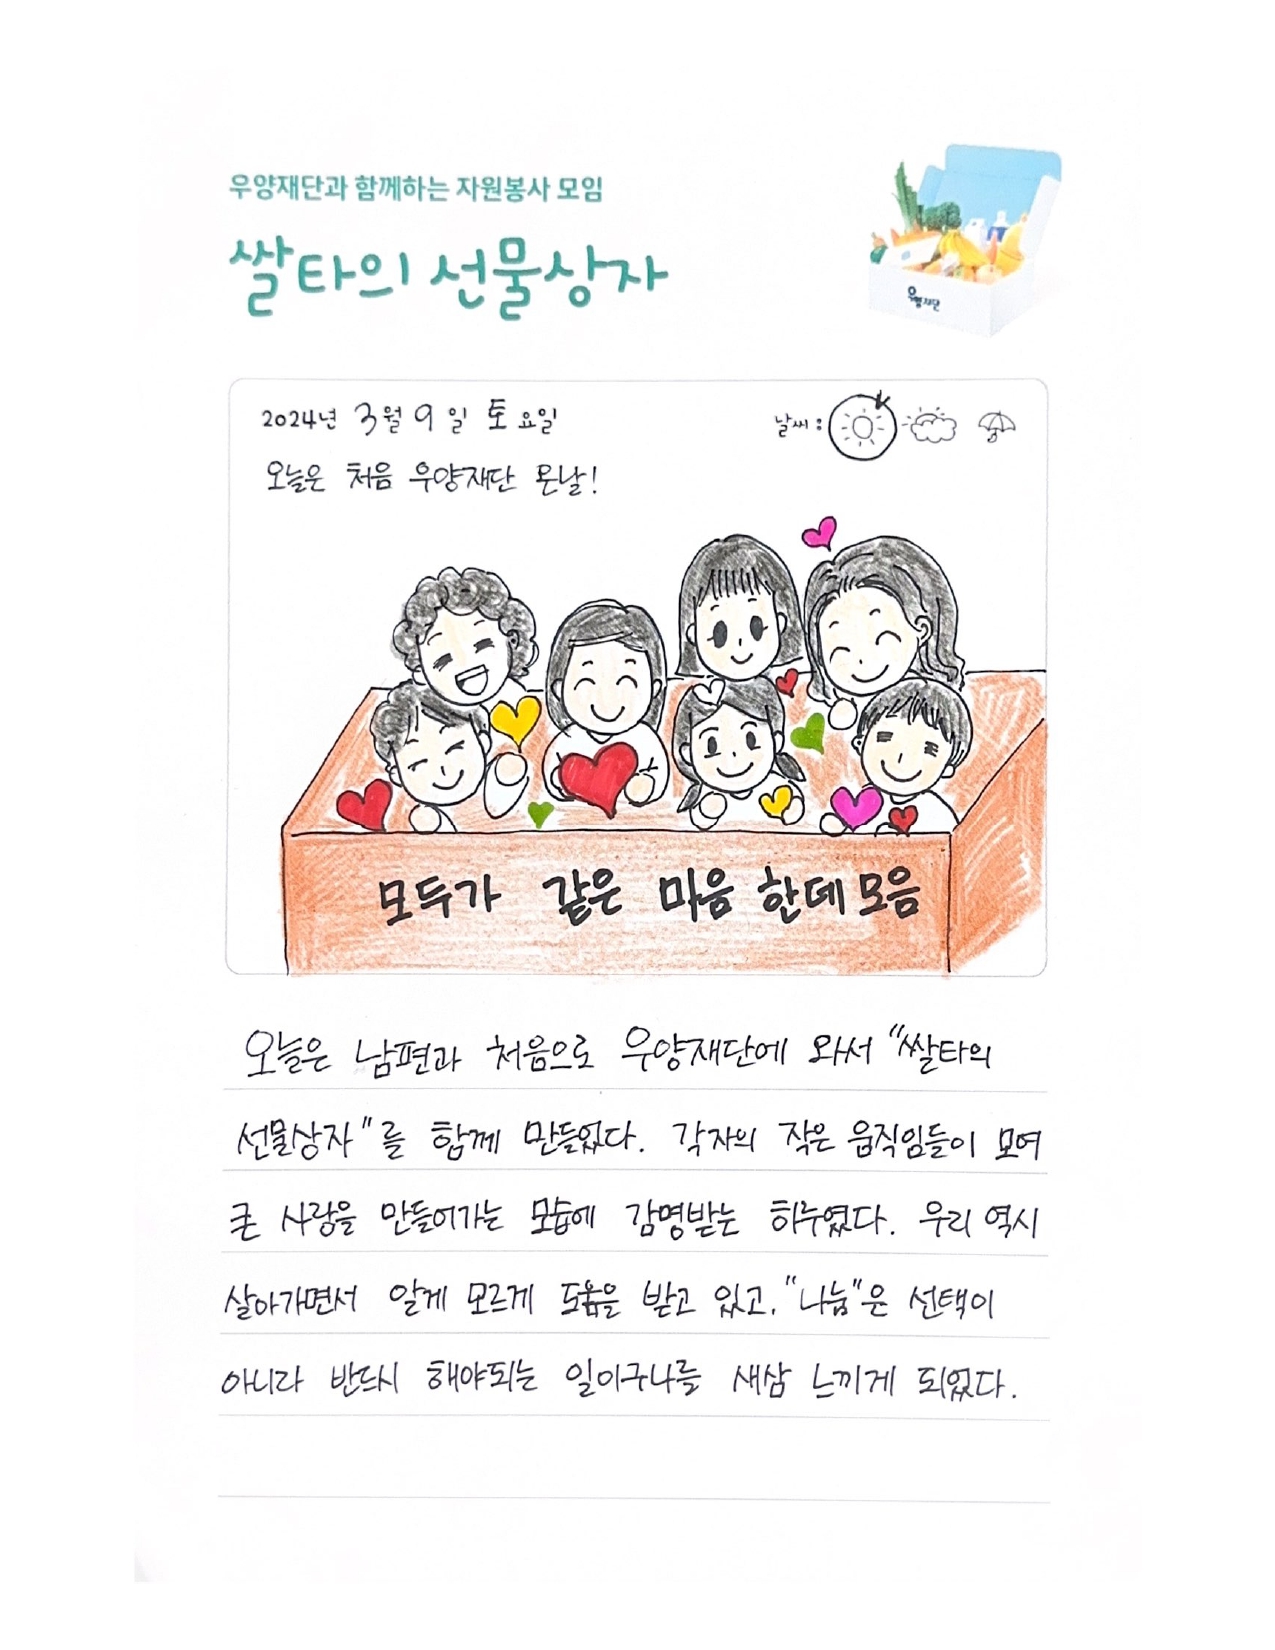 우양재단과 함께하는 자원봉사 모임
쌀타의 선물상자
우양재단
2024년 3월 9일 토요일
날씨:
오늘은 처음 우양재단 온날!
모두가 같은 마음 한데 모음
오늘은 남편과 처음으로 우양재단에 와서 "쌀타의
선물상자"를 함께 만들었다. 각자의 작은 움직임들이 모여
큰 사랑을 만들어가는 모습에 감명받는 하루였다. 우리 역시
살아가면서 알게 모르게 도움을 받고 있고, "나눔"은 선택이
아니라 반드시 해야되는 일이구나를 새삼 느끼게 되었다.